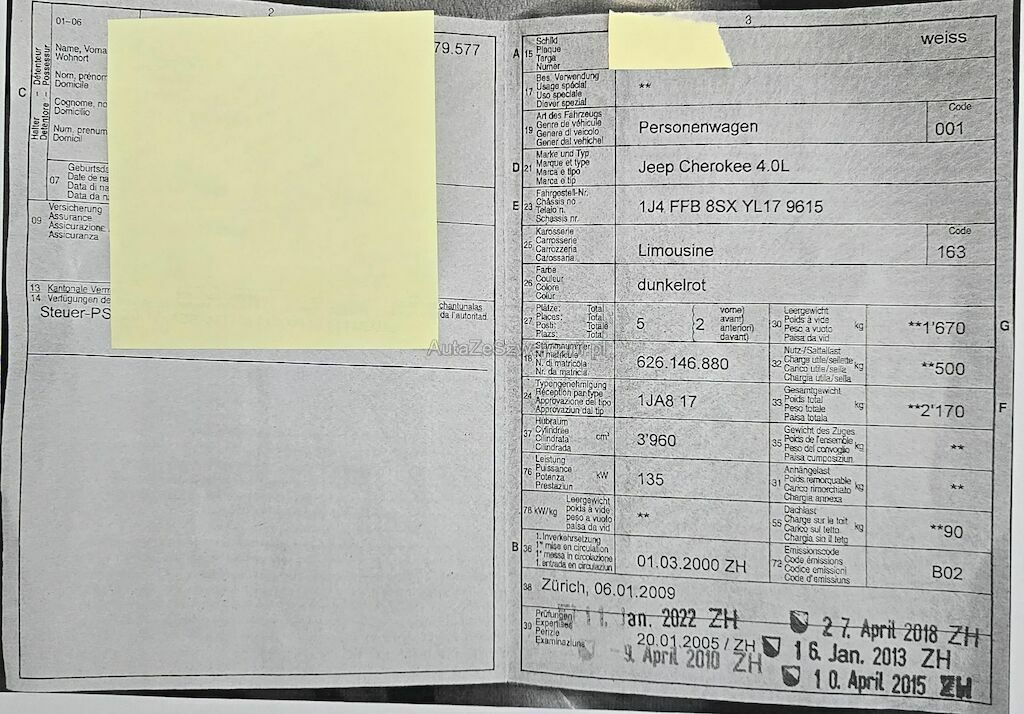 2
01-06
Name, Vorna
Wohnort
Nom, prénom
Domicile
Cognome, no
Domicilio
Num, prenum
Domicil
79.577
C
Halter
Détenteur
Detentore
Possessur
07
Geburtsda
Date de na
Data di na
Data da na
09
Versicherung
Assurance
Assicurazione
Assicuranza
13 Kantonale Verm
14 Verfügungen de
chantunalas
da l'autoritad
Steuer-PS
3
A 15
Schild
Plaque
Targa
Numer
weiss
17
Bes. Verwendung
Usage spécial
Uso speciale
Diever spezial
**
19
Art des Fahrzeugs
Genre de véhicule
Genere di veicolo
Gener dal vehichel
Personenwagen
Code
001
D 21
Marke und Typ
Marque et type
Marca e tipo
Marca e tip
Jeep Cherokee 4.0L
E 23
Fahrgestell-Nr.
Châssis no
Telaio n.
Schassis nr.
1J4 FFB 8SX YL17 9615
25
Karosserie
Carrosserie
Carrozzeria
Carossaria
Limousine
Code
163
26
Farbe
Couleur
Colore
Colur
dunkelrot
27
Plätze: Total
Places: Total
Posti: Totale
Plazs: Total
5
2
vorne)
avant)
anteriori)
davant)
30
Leergewicht
Poids à vide
Peso a vuoto
Paisa da vid
kg
**1'670
G
18
Stammnummer
N° matricule
N. di matricola
Nr. da matricla
626.146.880
32
Nutz-/Sattellast
Charge utile/sellette
Carico utile/sella
Chargia utila/sella
kg
**500
24
Typengenehmigung
Réception par type
Approvazione del tipo
Approvaziun dal tip
1JA8 17
33
Gesamtgewicht
Poids total
Peso totale
Paisa totala
kg
**2'170
F
37
Hubraum
Cylindrée
Cilindrata
Cilindrada
cm³
3'960
35
Gewicht des Zuges
Poids de l'ensemble
Peso del convoglio
Paisa cumposiziun
kg
**
76
Leistung
Puissance
Potenza
Prestaziun
kW
135
31
Anhängelast
Poids remorquable
Carico rimorchiato
Chargia annexa
kg
**
78 kW/kg
Leergewicht
poids à vide
peso a vuoto
paisa da vid
**
55
Dachlast
Charge sur le toit
Carico sul tetto
Chargia sin il tetg
kg
**90
B 36
1. Inverkehrsetzung
1re mise en circulation
1a messa in circolazione
1. entrada en circulaziun
01.03.2000 ZH
72
Emissionscode
Code émissions
Codice emissioni
Code d'emissiuns
B02
38
Zürich, 06.01.2009
39
Prüfungen
Expertises
Perizie
Examinaziuns
11. Jan. 2022 ZH
27. April 2018 ZH
20.01.2005 / ZH
16. Jan. 2013 ZH
- 9. April 2010 ZH
10. April 2015 ZH